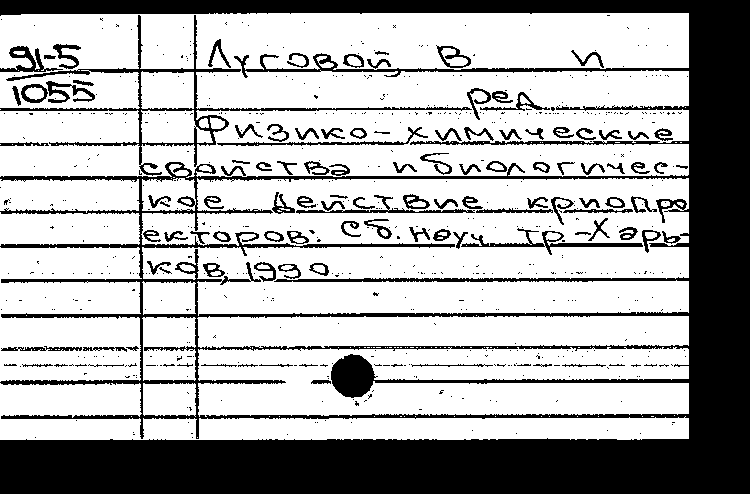 91-5
1055
Луговой, В П
ред
Физико-химические
свойства и биологичес-
кое действие криопро
екторов: Сб. науч тр.-Харь-
ков, 1990.